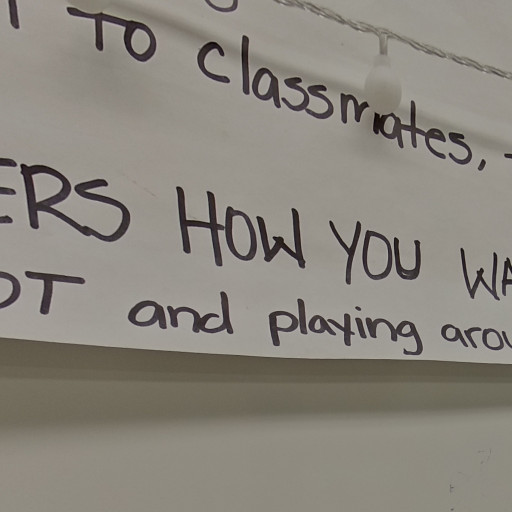 TO classmates,
ERS HOW YOU WA
OT and playing arou